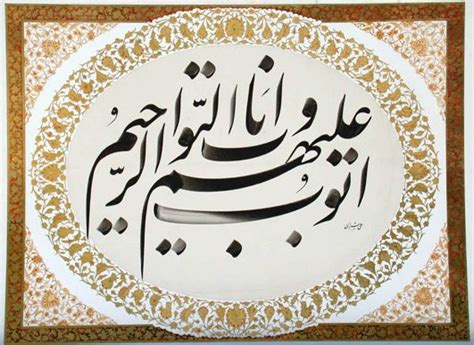 اتوب علیهم و انا التّواب الرّحیم